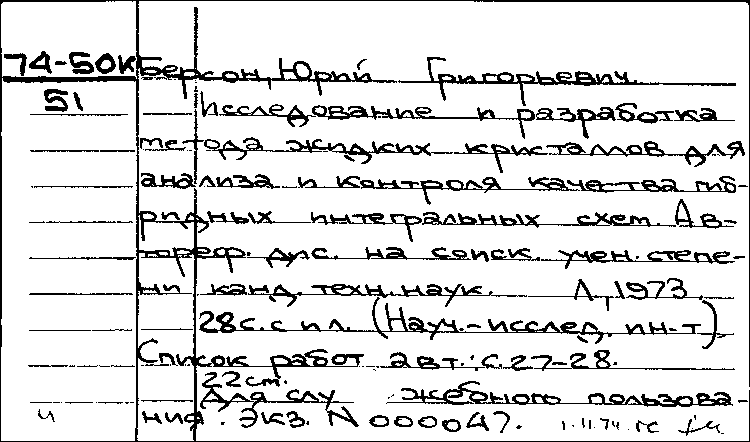 74-50к Берсон, Юрий Григорьевич.
51
Исследование и разработка
метода жидких кристаллов для
анализа и контроля качества гиб-
ридных интегральных схем. Ав-
тореф. дис. на соиск. учен. степе-
ни канд. техн. наук. Л., 1973.
28 с. с ил. (Науч.-исслед. ин-т).
Список работ авт.: с. 27-28.
22 см.
Для слу жебного пользова-
ния. Экз. N 000047. 1.11.74 гс